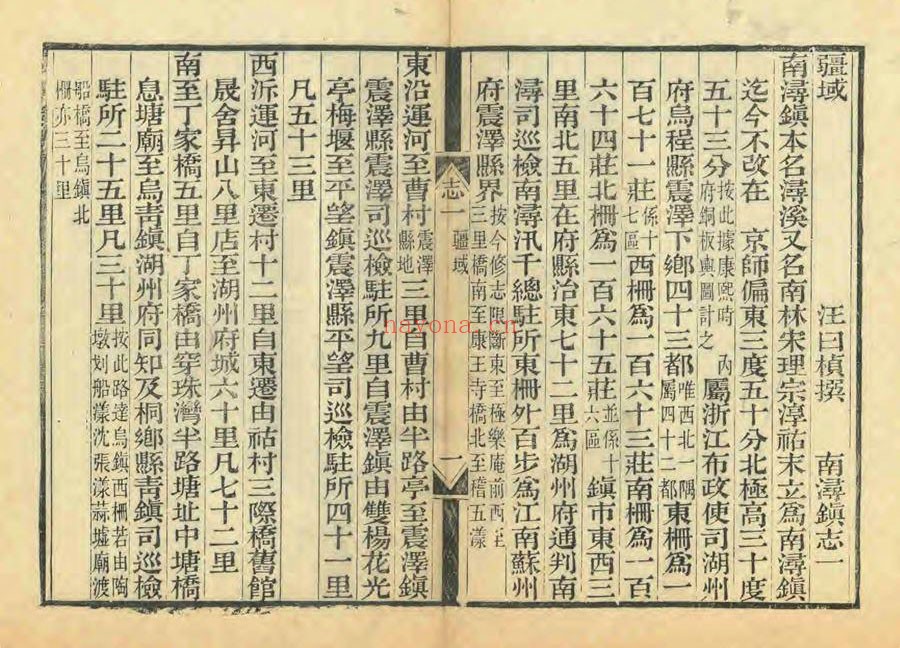 疆域 汪曰楨撰 南潯鎮志一
南潯鎮本名潯溪又名南林宋理宗淳祐末立爲南潯鎮
迄今不改在 京師偏東三度五十分北極高三十度
五十三分按此據康熙時 內府銅板輿圖計之屬浙江布政使司湖州
府烏程縣震澤下鄉四十三都唯西北一隅屬四十二都東柵爲一
百七十一莊係十七區西柵爲一百六十三莊南柵爲一百
六十四莊北柵爲一百六十五莊並係十六區鎮市東西三
里南北五里在府縣治東七十二里爲湖州府通判南
潯司巡檢南潯汛千總駐所東柵外百步爲江南蘇州
府震澤縣界按今修志限斷東至極樂庵前西至三里橋南至康王寺橋北至稽五漾
志一 疆域 一
東沿運河至曹村震澤縣地三里自曹村由半路亭至震澤鎮
震澤縣震澤司巡檢駐所九里自震澤鎮由雙楊花光
亭梅堰至平望鎮震澤縣平望司巡檢駐所四十一里
凡五十三里
西泝運河至東遷村十二里自東遷由祜村三際橋舊館
晟舍昇山八里店至湖州府城六十里凡七十二里
南至丁家橋五里自丁家橋由穿珠灣半路塘址中塘橋
息塘廟至烏靑鎮湖州府同知及桐鄉縣靑鎮司巡檢
駐所二十五里凡三十里按此路達烏鎮西柵若由陶墩划船漾沈張漾蒜墟廟渡
船橋至烏鎮北柵亦三十里
nayona.cn